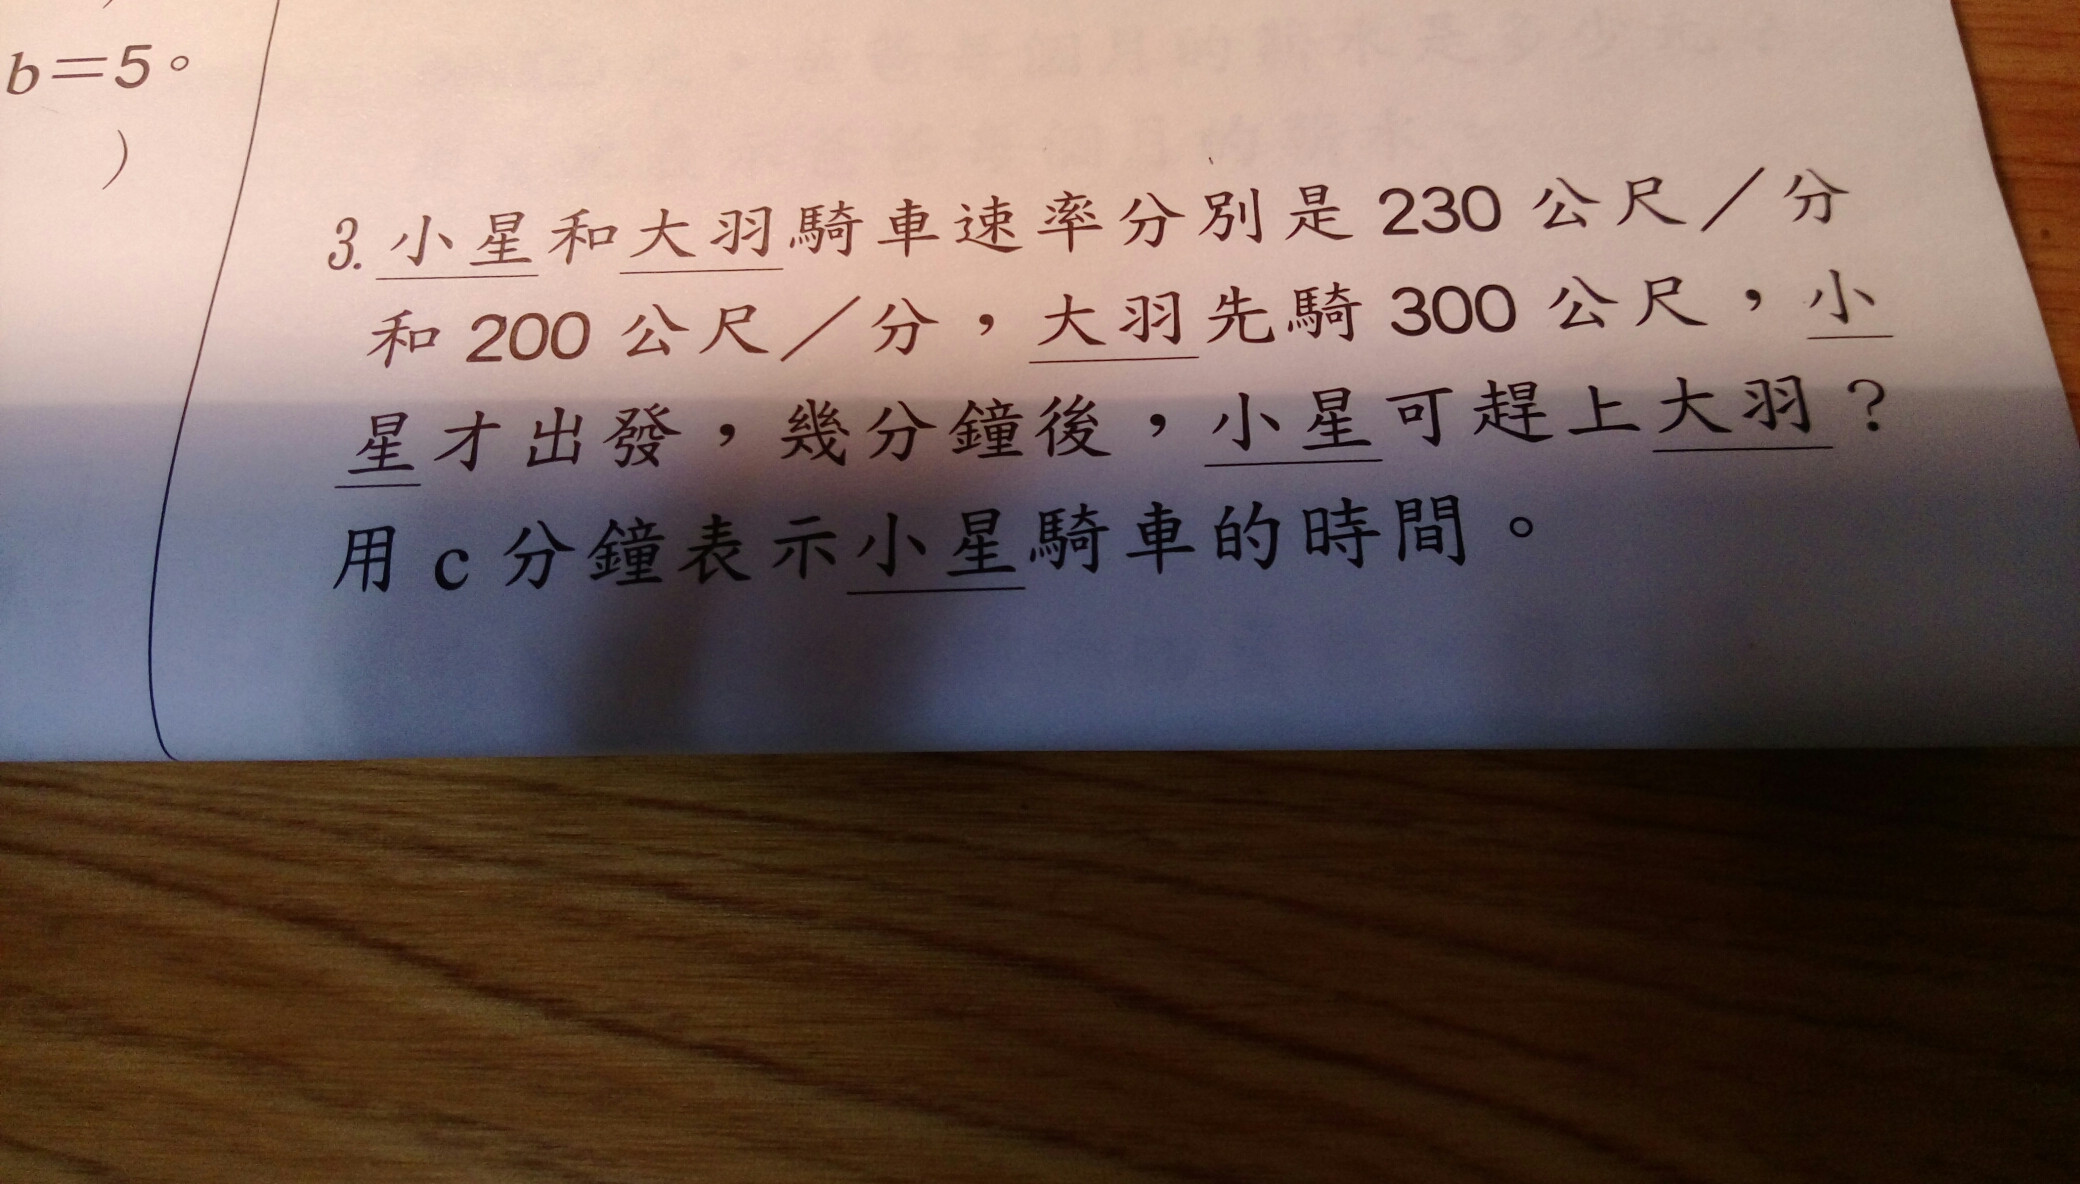 b=5。
)
3.小星和大羽騎車速率分別是230公尺／分
和200公尺／分，大羽先騎300公尺，小
星才出發，幾分鐘後，小星可趕上大羽？
用c分鐘表示小星騎車的時間。